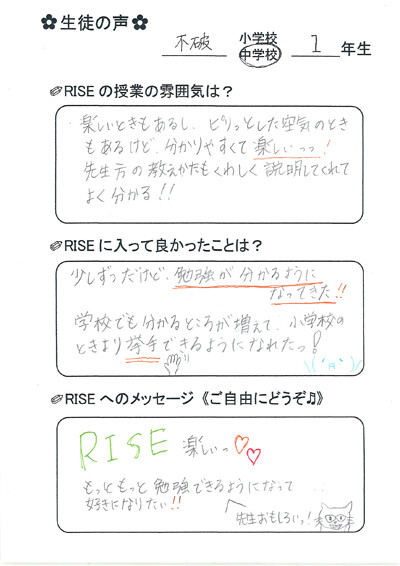 ✿生徒の声✿
不破 小学校 中学校 1 年生
RISEの授業の雰囲気は？
楽しいときもあるし、ピリッとした空気のとき
もあるけど、分かりやすくて楽しいっっ！
先生方の教えかたもくわしく説明してくれて
よく分かる！！
RISEに入って良かったことは？
少しずつだけど、勉強が分かるように
なってきた！！
学校でも分かるところが増えて、小学校の
ときより挙手できるようになれたっ！
RISEへのメッセージ《ご自由にどうぞ♫》
RISE 楽しいっ♡♡
もっともっと勉強できるようになって
好きになりたい！！
先生おもしろいっ！